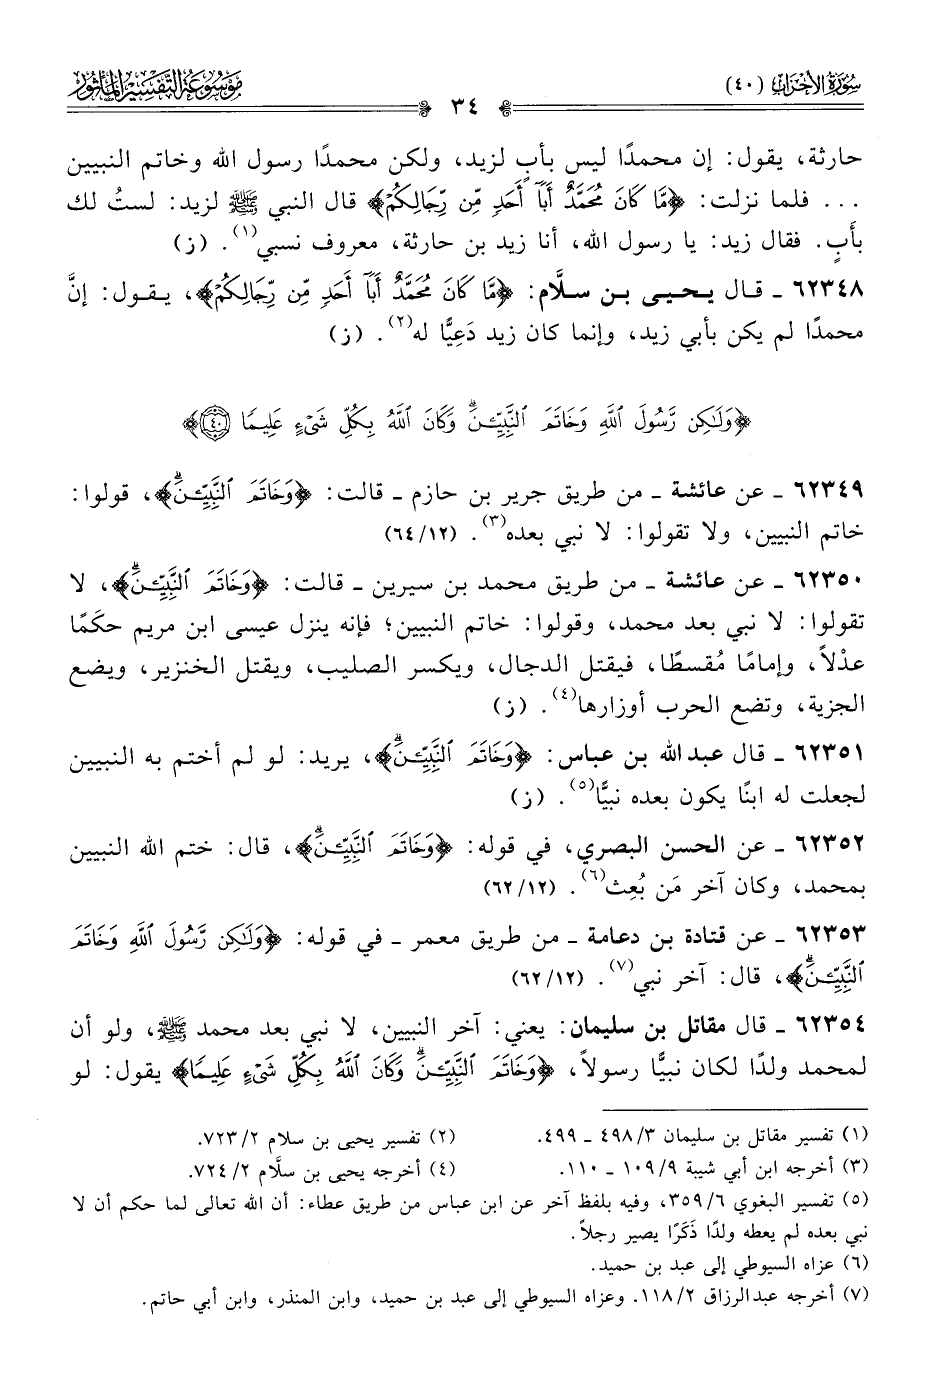 سُورَةُ الأَحْزَابِ (٤٠)
٣٤
مَوْسُوعَةُ التَّفْسِيرِ المَأْثُور
حارثة، يقول: إن محمدًا ليس بأبٍ لزيد، ولكن محمدًا رسول الله وخاتم النبيين
... فلما نزلت: ﴿مَّا كَانَ مُحَمَّدٌ أَبَآ أَحَدٍ مِّن رِّجَالِكُمْ﴾ قال النبي ﷺ لزيد: لستُ لك
بأبٍ. فقال زيد: يا رسول الله، أنا زيد بن حارثة، معروف نسبي(١). (ز)
٦٢٣٤٨ ـ قال يحيى بن سلَّام: ﴿مَّا كَانَ مُحَمَّدٌ أَبَآ أَحَدٍ مِّن رِّجَالِكُمْ﴾، يقول: إنَّ
محمدًا لم يكن بأبي زيد، وإنما كان زيد دَعِيًّا له(٢). (ز)
﴿وَلَٰكِن رَّسُولَ ٱللَّهِ وَخَاتَمَ ٱلنَّبِيِّـۧنَۗ وَكَانَ ٱللَّهُ بِكُلِّ شَىْءٍ عَلِيمًا ٤٠﴾
٦٢٣٤٩ ـ عن عائشة ـ من طريق جرير بن حازم ـ قالت: ﴿وَخَاتَمَ ٱلنَّبِيِّـۧنَۗ﴾، قولوا:
خاتم النبيين، ولا تقولوا: لا نبي بعده(٣). (١٢/ ٦٤)
٦٢٣٥٠ ـ عن عائشة ـ من طريق محمد بن سيرين ـ قالت: ﴿وَخَاتَمَ ٱلنَّبِيِّـۧنَۗ﴾، لا
تقولوا: لا نبي بعد محمد، وقولوا: خاتم النبيين؛ فإنه ينزل عيسى ابن مريم حكَمًا
عدْلاً، وإمامًا مُقسطًا، فيقتل الدجال، ويكسر الصليب، ويقتل الخنزير، ويضع
الجزية، وتضع الحرب أوزارها(٤). (ز)
٦٢٣٥١ ـ قال عبد الله بن عباس: ﴿وَخَاتَمَ ٱلنَّبِيِّـۧنَۗ﴾، يريد: لو لم أختم به النبيين
لجعلت له ابنًا يكون بعده نبيًّا(٥). (ز)
٦٢٣٥٢ ـ عن الحسن البصري، في قوله: ﴿وَخَاتَمَ ٱلنَّبِيِّـۧنَۗ﴾، قال: ختم الله النبيين
بمحمد، وكان آخر مَن بُعِث(٦). (١٢/ ٦٢)
٦٢٣٥٣ ـ عن قتادة بن دعامة ـ من طريق معمر ـ في قوله: ﴿وَلَٰكِن رَّسُولَ ٱللَّهِ وَخَاتَمَ
ٱلنَّبِيِّـۧنَۗ﴾، قال: آخر نبي(٧). (١٢/ ٦٢)
٦٢٣٥٤ ـ قال مقاتل بن سليمان: يعني: آخر النبيين، لا نبي بعد محمد ﷺ، ولو أن
لمحمد ولدًا لكان نبيًّا رسولاً، ﴿وَخَاتَمَ ٱلنَّبِيِّـۧنَۗ وَكَانَ ٱللَّهُ بِكُلِّ شَىْءٍ عَلِيمًا﴾ يقول: لو
(١) تفسير مقاتل بن سليمان ٣/ ٤٩٨ ـ ٤٩٩.
(٢) تفسير يحيى بن سلام ٢/ ٧٢٣.
(٣) أخرجه ابن أبي شيبة ٩/ ١٠٩ ـ ١١٠.
(٤) أخرجه يحيى بن سلَّام ٢/ ٧٢٤.
(٥) تفسير البغوي ٦/ ٣٥٩، وفيه بلفظ آخر عن ابن عباس من طريق عطاء: أن الله تعالى لما حكم أن لا
نبي بعده لم يعطه ولدًا ذَكَرًا يصير رجلاً.
(٦) عزاه السيوطي إلى عبد بن حميد.
(٧) أخرجه عبدالرزاق ٢/ ١١٨. وعزاه السيوطي إلى عبد بن حميد، وابن المنذر، وابن أبي حاتم.